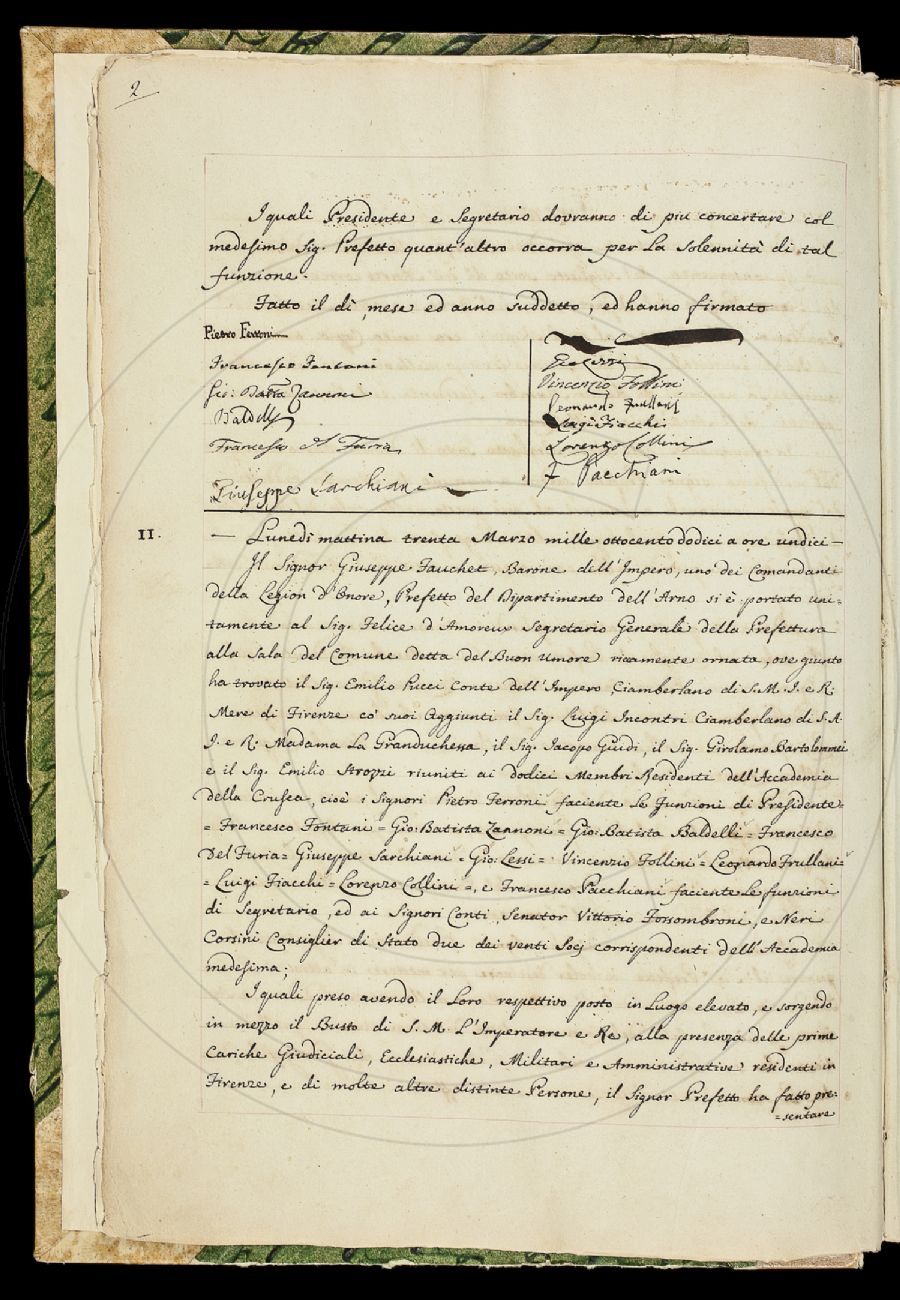 2
I quali Presidente e Segretario dovranno di più concertare col
medesimo Sig. Prefetto quant'altro occorra per la Solennità di tal
funzione.
Fatto il dì, mese ed anno suddetto, ed hanno firmato
Pietro Ferroni
Francesco Fontani
Gio: Batta Zannoni
Baldelli
Francesco del Furia
Giuseppe Sarchiani
Gio Lessi
Vincenzio Follini
Leonardo Frullani
Luigi Fiacchi
Lorenzo Collini
F Pacchiani
II.
— Lunedì mattina trenta Marzo mille ottocento dodici a ore undici —
Il Signor Giuseppe Fauchet, Barone dell'Impero, uno dei Comandanti
della Legion d'Onore, Prefetto del Dipartimento dell'Arno si è portato uni=
tamente al Sig. Felice d'Amoreux Segretario Generale della Prefettura
alla Sala del Comune detta del Buon umore riccamente ornata, ove giunto
ha trovato il Sig. Emilio Pucci Conte dell'Impero Ciamberlano di S. M. I. e R.
Mere di Firenze co' suoi Aggiunti il Sig. Luigi Incontri Ciamberlano di S. A.
I. e R. Madama La Granduchessa, il Sig. Iacopo Guidi, il Sig. Girolamo Bartolommei
e il Sig. Emilio Strozzi riuniti ai dodici Membri Residenti dell'Accademia
della Crusca, cioè i Signori Pietro Ferroni faciente le funzioni di Presidente
= Francesco Fontani = Gio: Batista Zannoni = Gio: Batista Baldelli = Francesco
Del Furia = Giuseppe Sarchiani = Gio: Lessi = Vincenzio Follini = Leonardo Frullani =
= Luigi Fiacchi = Lorenzo Collini =, e Francesco Pacchiani faciente le funzioni
di Segretario, ed ai Signori Conti Senator Vittorio Fossombroni, e Neri
Corsini Consiglier di Stato due dei venti Socj corrispondenti dell'Accademia
medesima;
I quali preso avendo il Loro respettivo posto in Luogo elevato, e sorgendo
in mezzo il Busto di S. M. L'Imperatore e Re, alla presenza delle prime
Cariche Giudiciali, Ecclesiastiche, Militari e Amministrative residenti in
Firenze, e di molte altre distinte Persone, il Signor Prefetto ha fatto pre=
=sentare